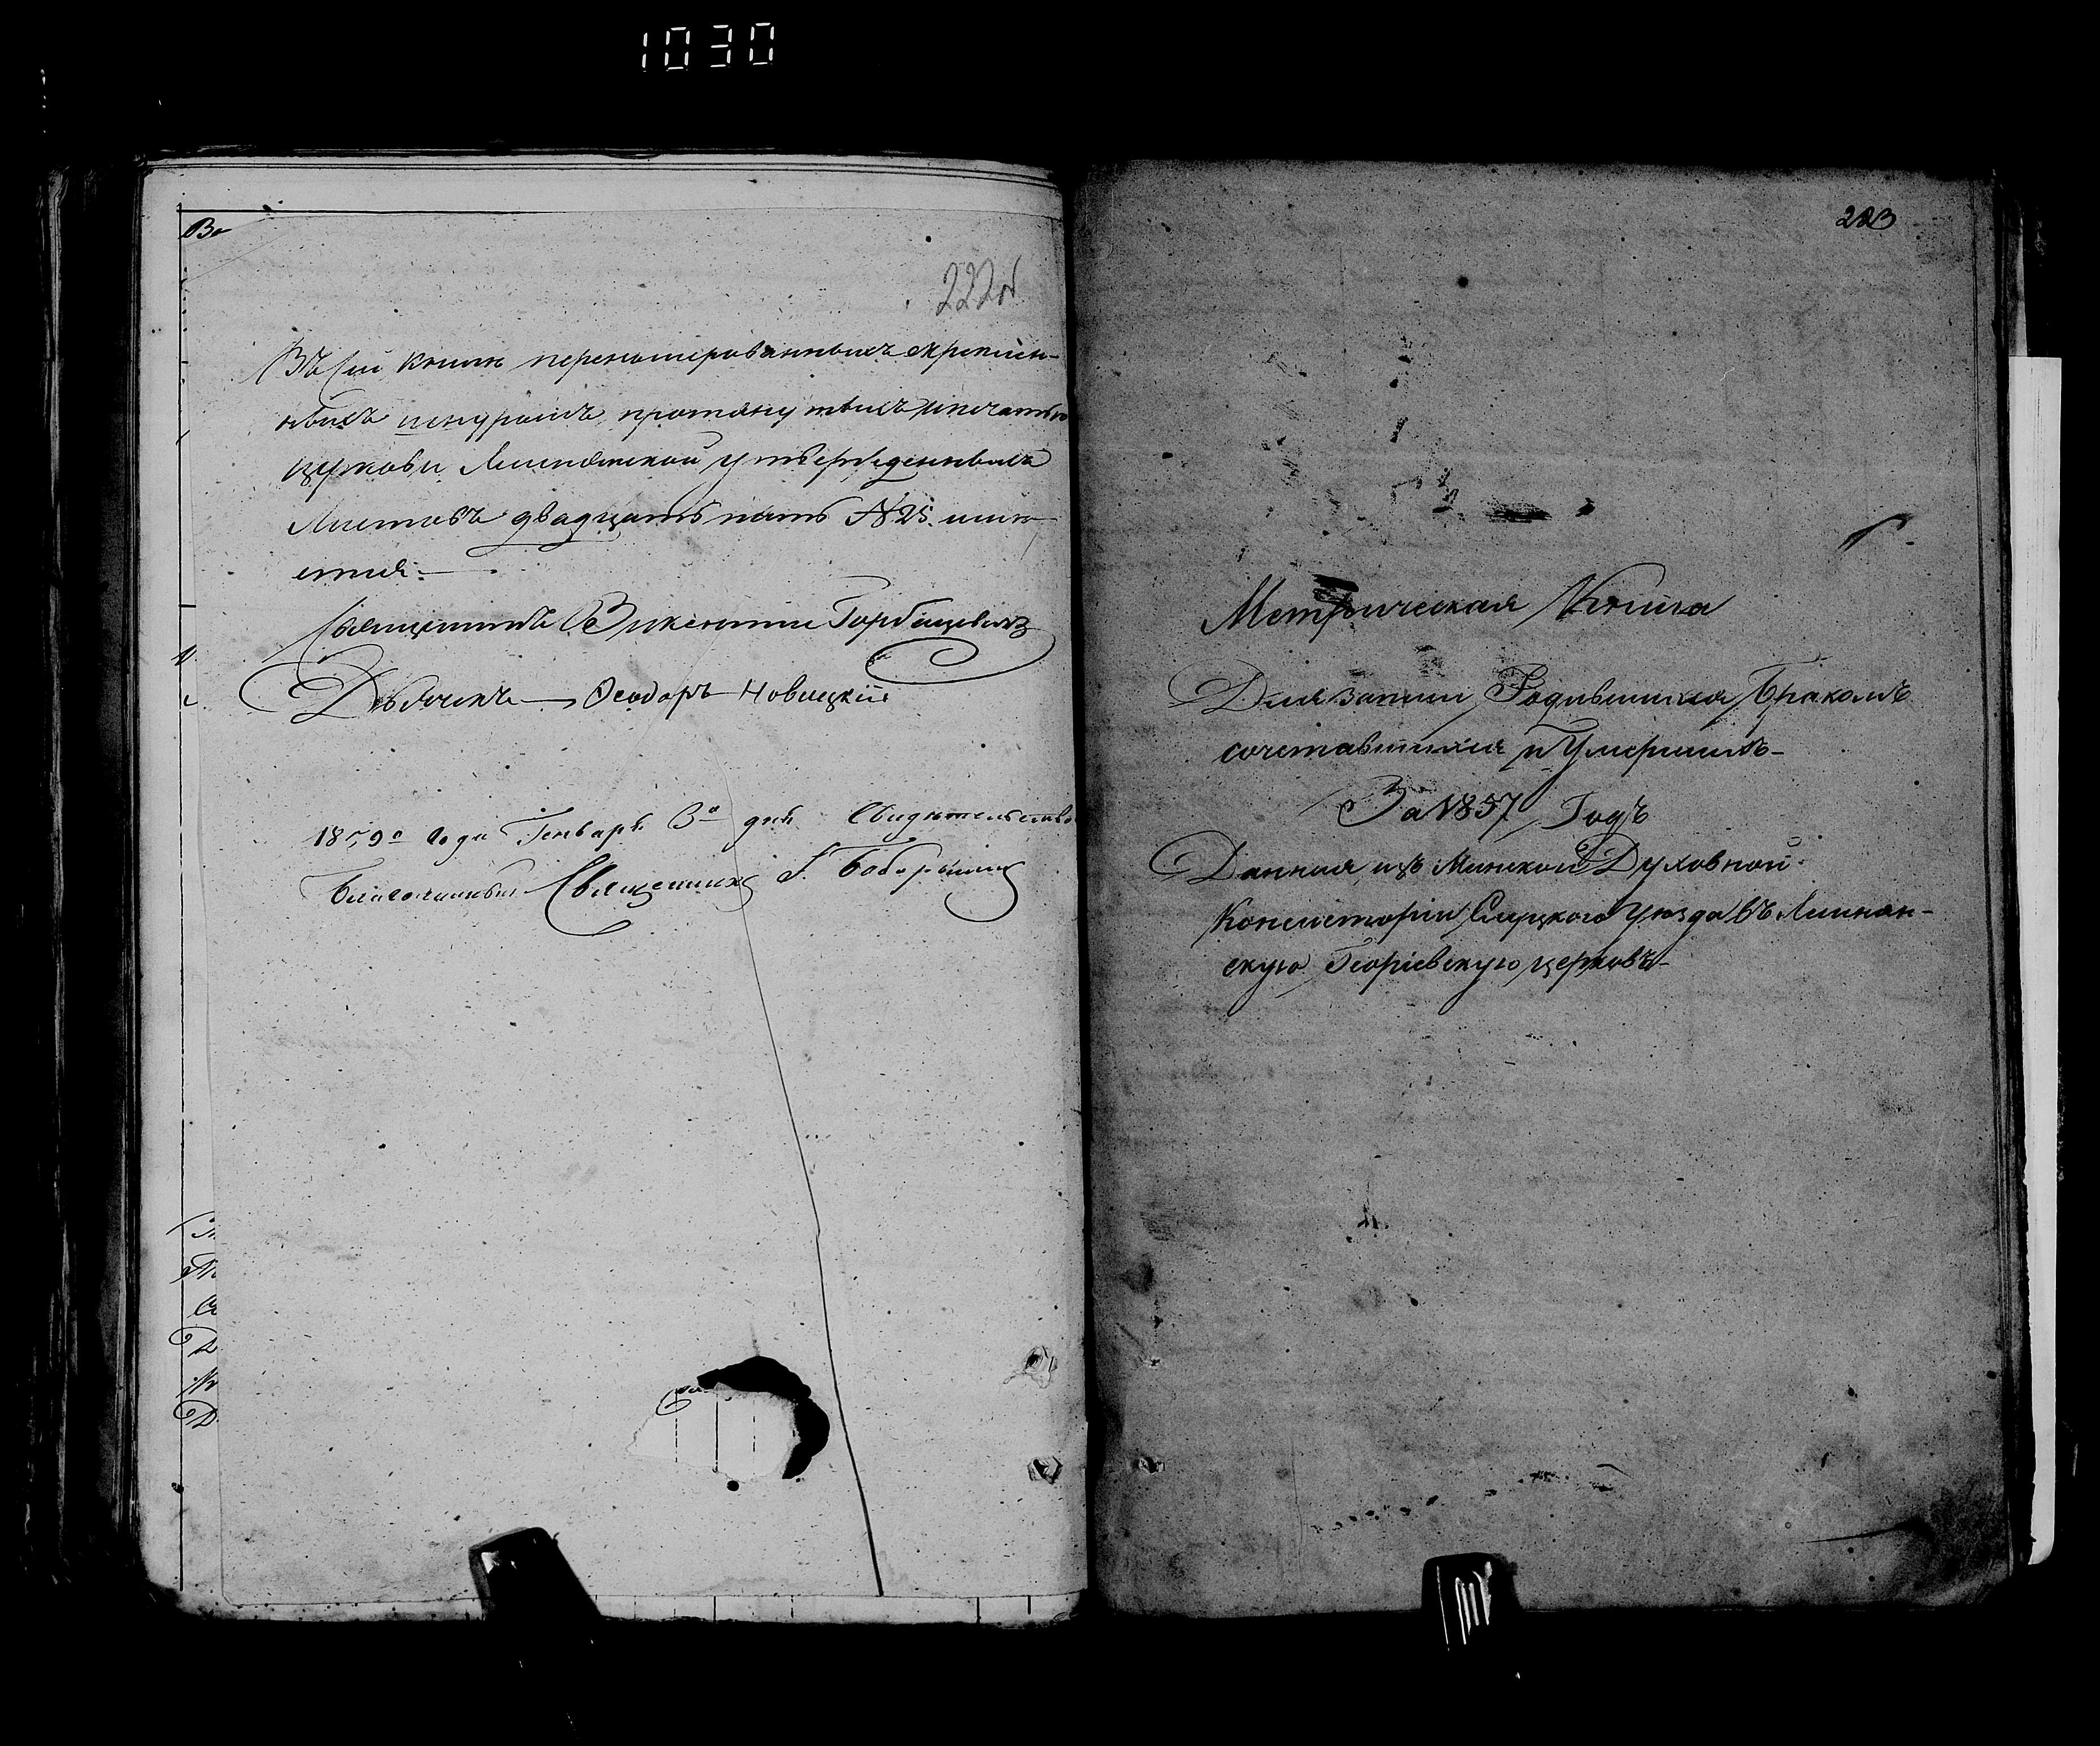 1030
Во
222об
Въ сей книгѣ перенумерованныхъ скрѣплен-
ныхъ шнуромъ протянутыхъ и печатью
церкви утвержденныхъ
Листовъ двадцать пять N 25.
Священникъ Викентий Горбацевичъ
Дьячекъ Ѳеодоръ Новицкій
1859о года Генварь 3о дня Свидетельство
Благочинный Священникъ Г. Боборыкинъ
223
Метрическая Книга
Для записи Родившихся, Бракомъ
сочетавшихся и Умершихъ
За 1857 Годъ
Данная изъ Минской Духовной
Консисторіи Слуцкого Уезда въ
скую Георіевскую церковь